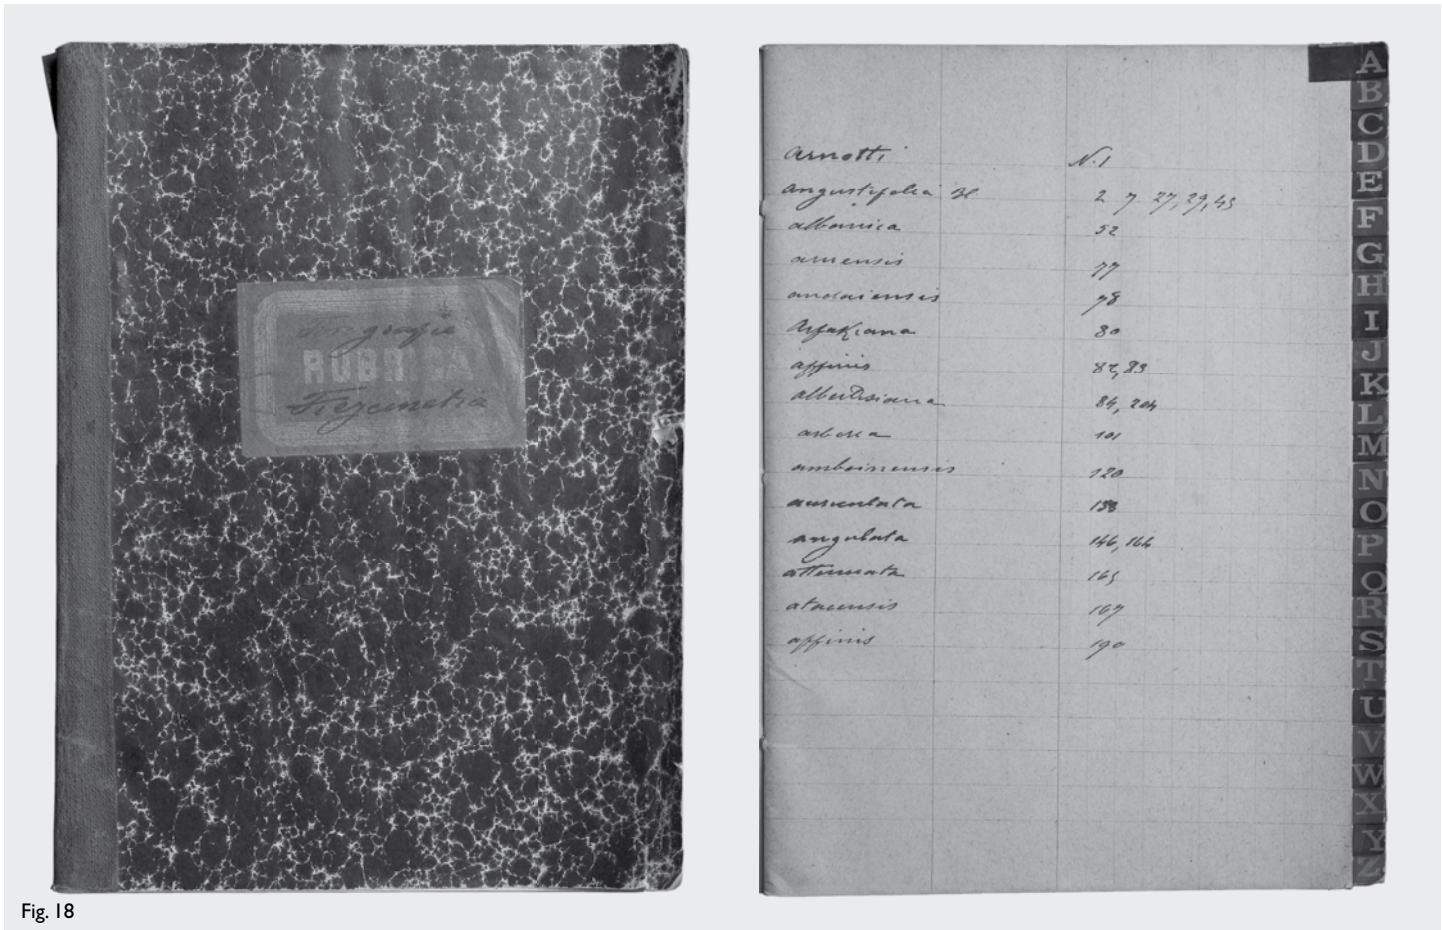 Fotografie
RUBRICA
Freycinetia
Arnotti N. 1
angustifolia Bl 2 7 27, 29, 45
albannica 52
aruensis 77
andaiensis 78
Arfakiana 80
affinis 82, 83
albertisiana 84, 204
arborea 101
amboinensis 120
auriculata 138
angulata 146, 164
attenuata 165
ataensis 167
affinis 190
A
B
C
D
E
F
G
H
I
J
K
L
M
N
O
P
Q
R
S
T
U
V
W
X
Y
Z
Fig. 18